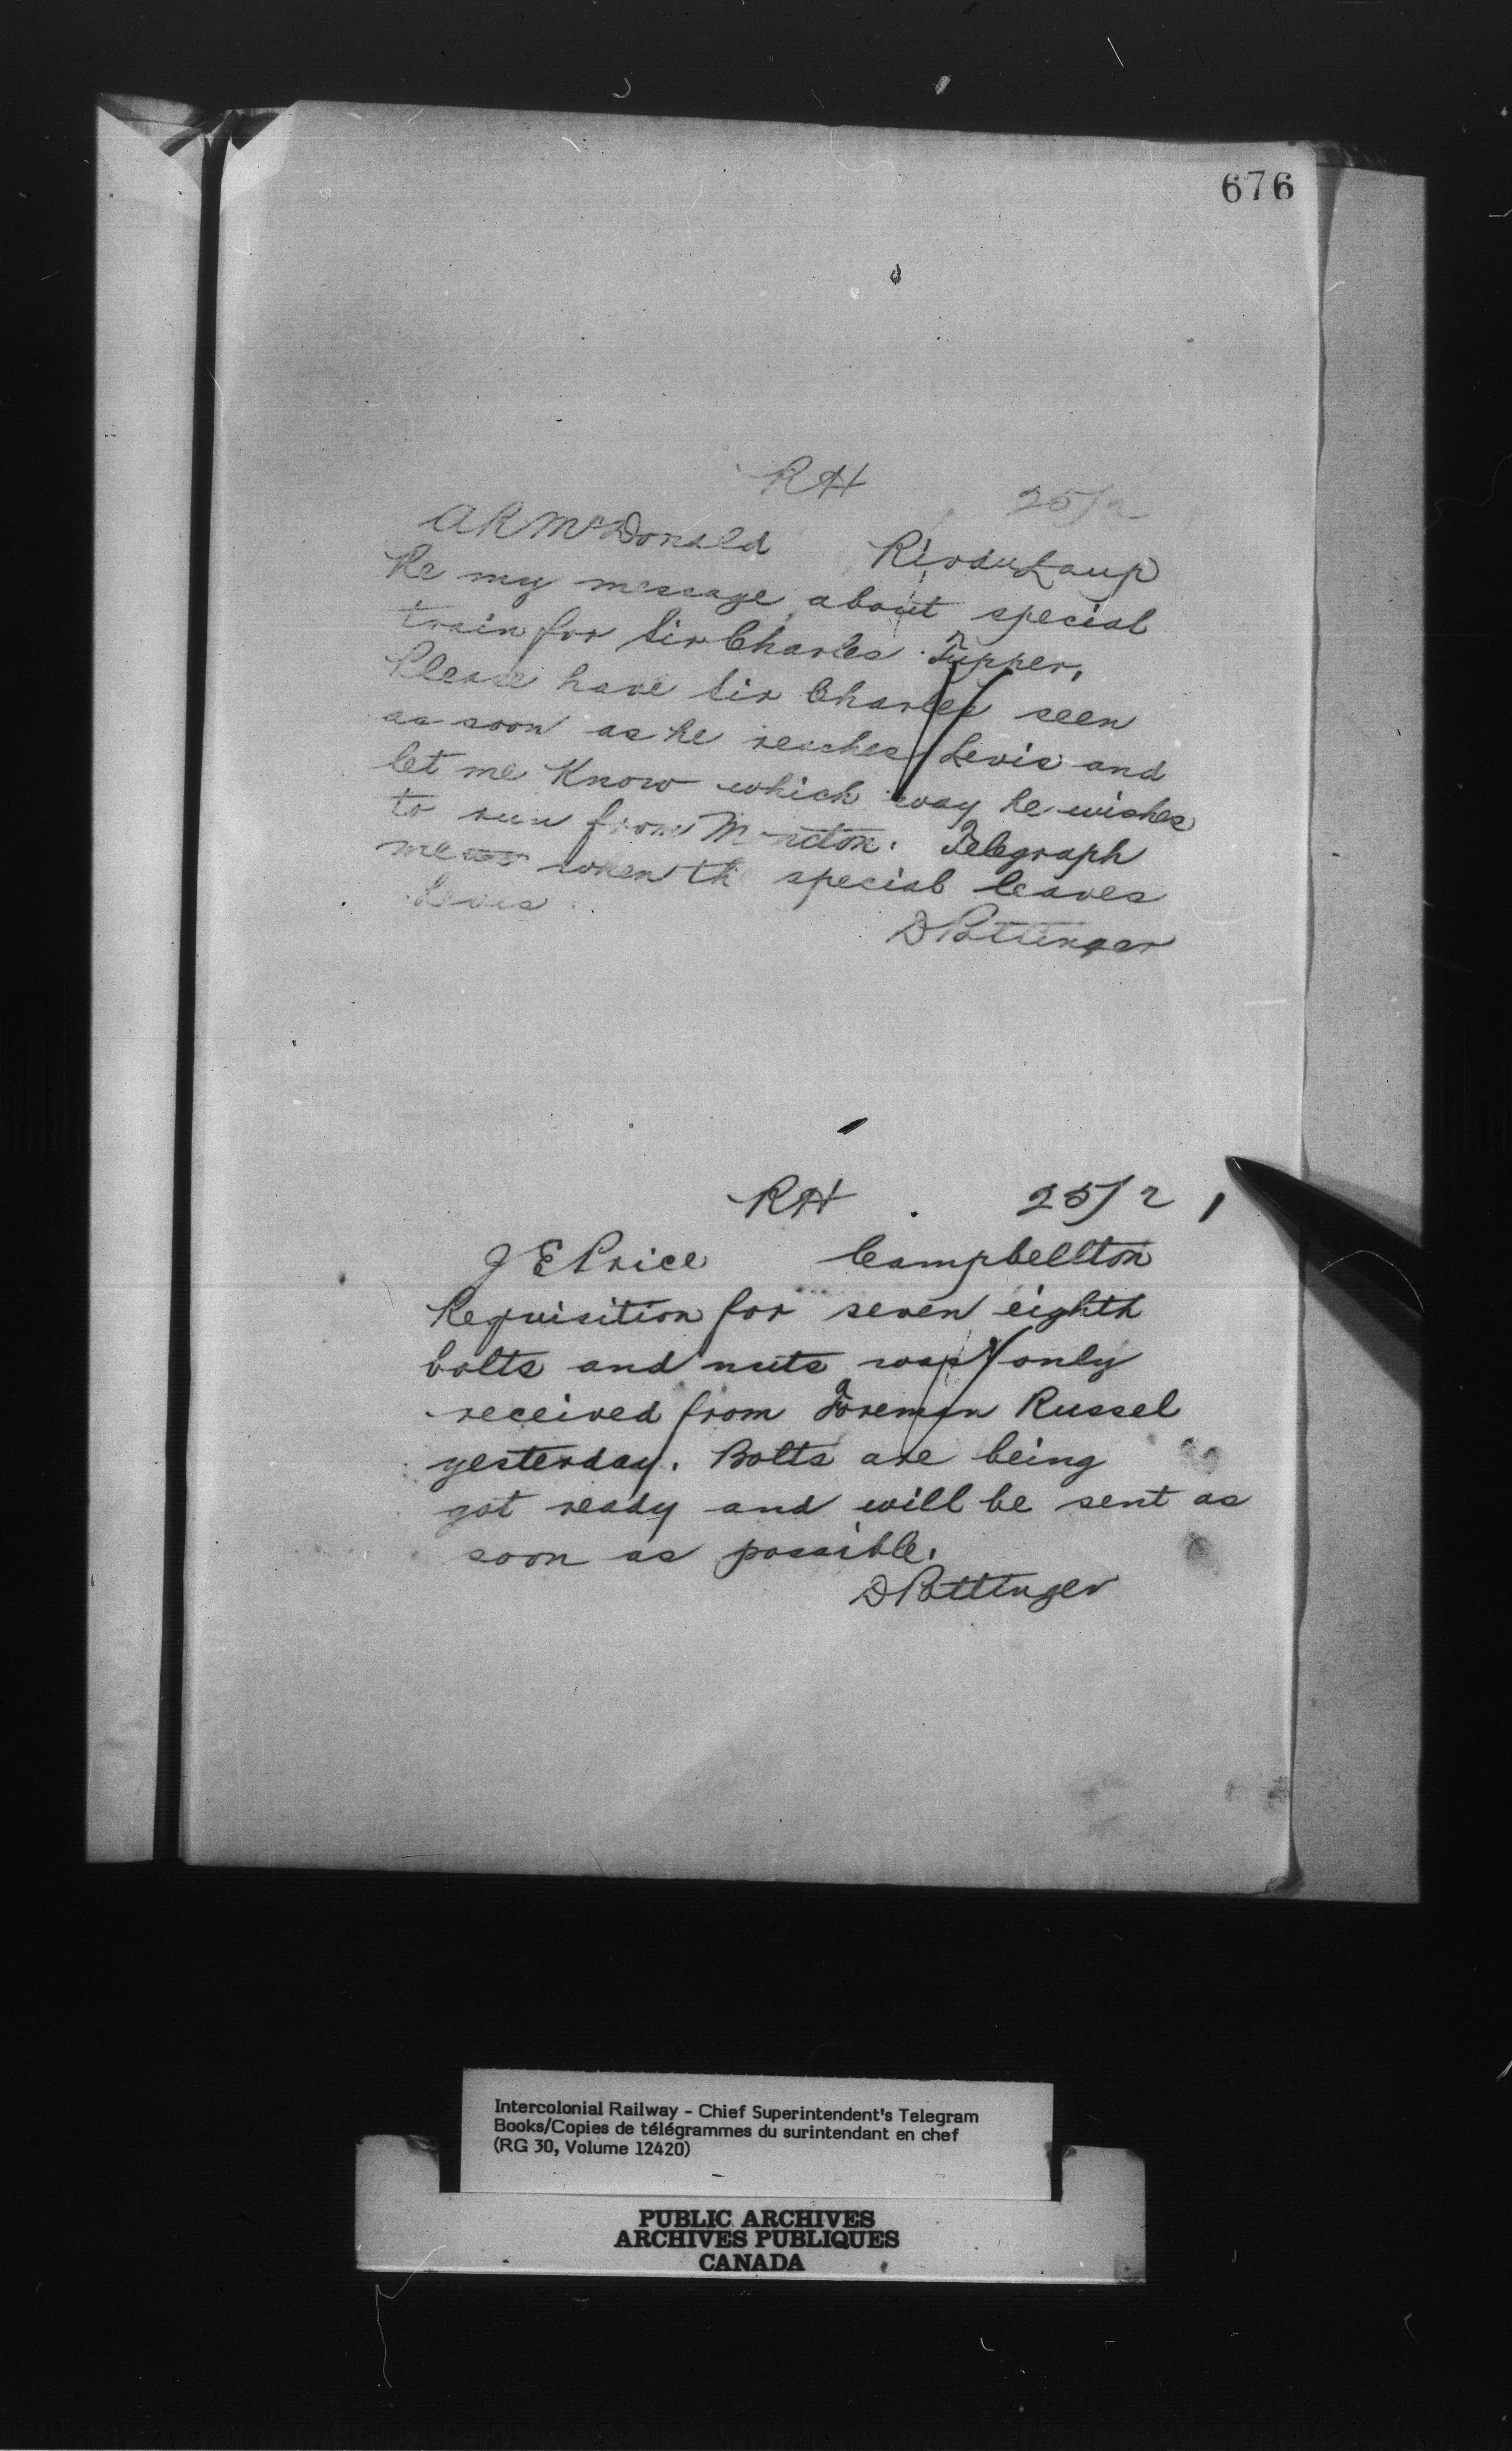 676
RH 25/2
A R McDonald RivduLoup
Re my message about special
train for Sir Charles Tupper,
Please have Sir Charles seen
as soon as he reaches Levis and
let me Know which way he wishes
to run from Moncton. Telegraph
me when the special leaves
Levis
D Pottinger
RH 25/2
J E Price Campbellton
Requisition for seven eighth
bolts and nuts was only
received from Foreman Russel
yesterday. Bolts are being
got ready and will be sent as
soon as possible.
D Pottinger
Intercolonial Railway - Chief Superintendent's Telegram
Books/Copies de télégrammes du surintendant en chef
(RG 30, Volume 12420)
PUBLIC ARCHIVES
ARCHIVES PUBLIQUES
CANADA